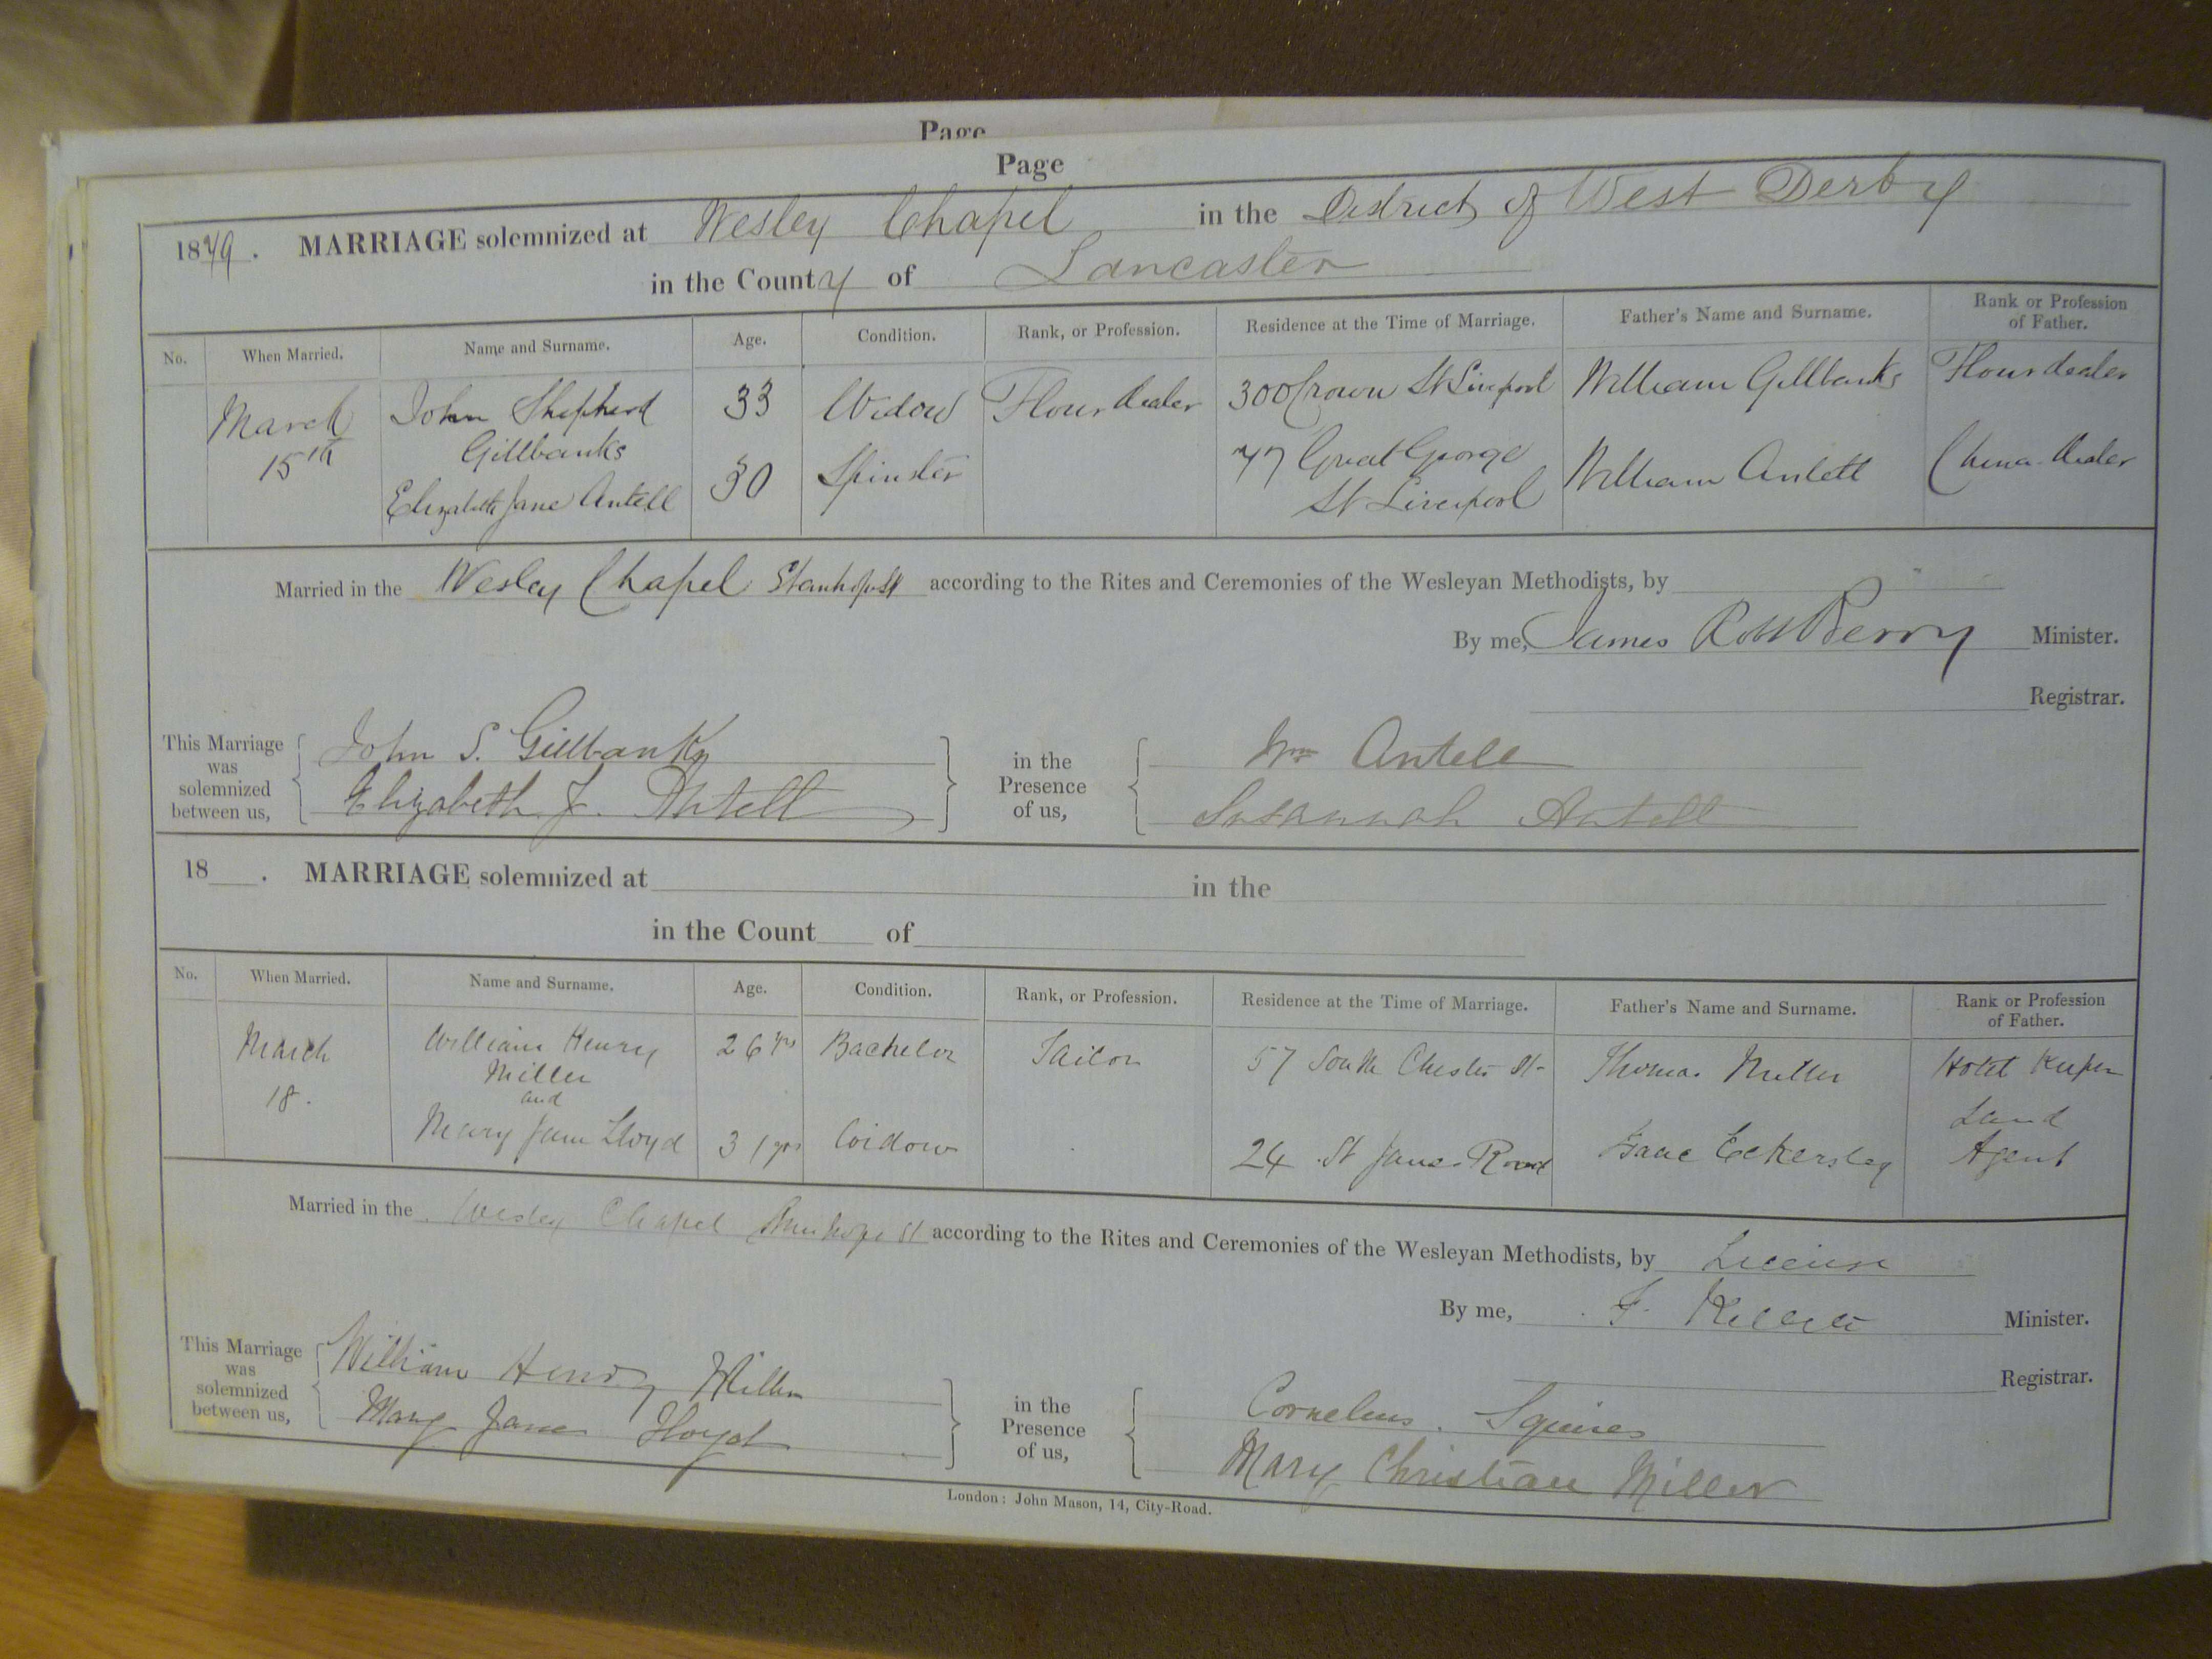 Page
Page
1879. MARRIAGE solemnized at Wesley Chapel in the District of West Derby
in the County of Lancaster
No. When Married. Name and Surname. Age. Condition. Rank, or Profession. Residence at the Time of Marriage. Father's Name and Surname. Rank or Profession of Father.
March 15th John Shepherd Gillbanks 33 Widow Flour dealer 300 Crown St Liverpool William Gillbanks Flour dealer
Elizabeth Jane Antell 30 Spinster 77 Great George St Liverpool William Antell China dealer
Married in the Wesley Chapel Stanhope St according to the Rites and Ceremonies of the Wesleyan Methodists, by
By me, James Berry Minister.
Registrar.
This Marriage was solemnized between us, John S. Gillbanks
Elizabeth J. Antell
in the Presence of us, Wm Antell
Susannah Antell
18 . MARRIAGE solemnized at in the
in the Count of
No. When Married. Name and Surname. Age. Condition. Rank, or Profession. Residence at the Time of Marriage. Father's Name and Surname. Rank or Profession of Father.
March 18. William Henry Miller 26 yrs Bachelor Sailor 57 South Chester St Thomas Miller Hotel Keeper
and
Mary Jane Lloyd 31 yrs Widow 24 St James Road Isaac Eckersley Land Agent
Married in the Wesley Chapel Stanhope St according to the Rites and Ceremonies of the Wesleyan Methodists, by License
By me, F. Minister.
Registrar.
This Marriage was solemnized between us, William Henry Miller
Mary Jane Lloyd
in the Presence of us, Cornelius Squires
Mary Christian Miller
London: John Mason, 14, City-Road.